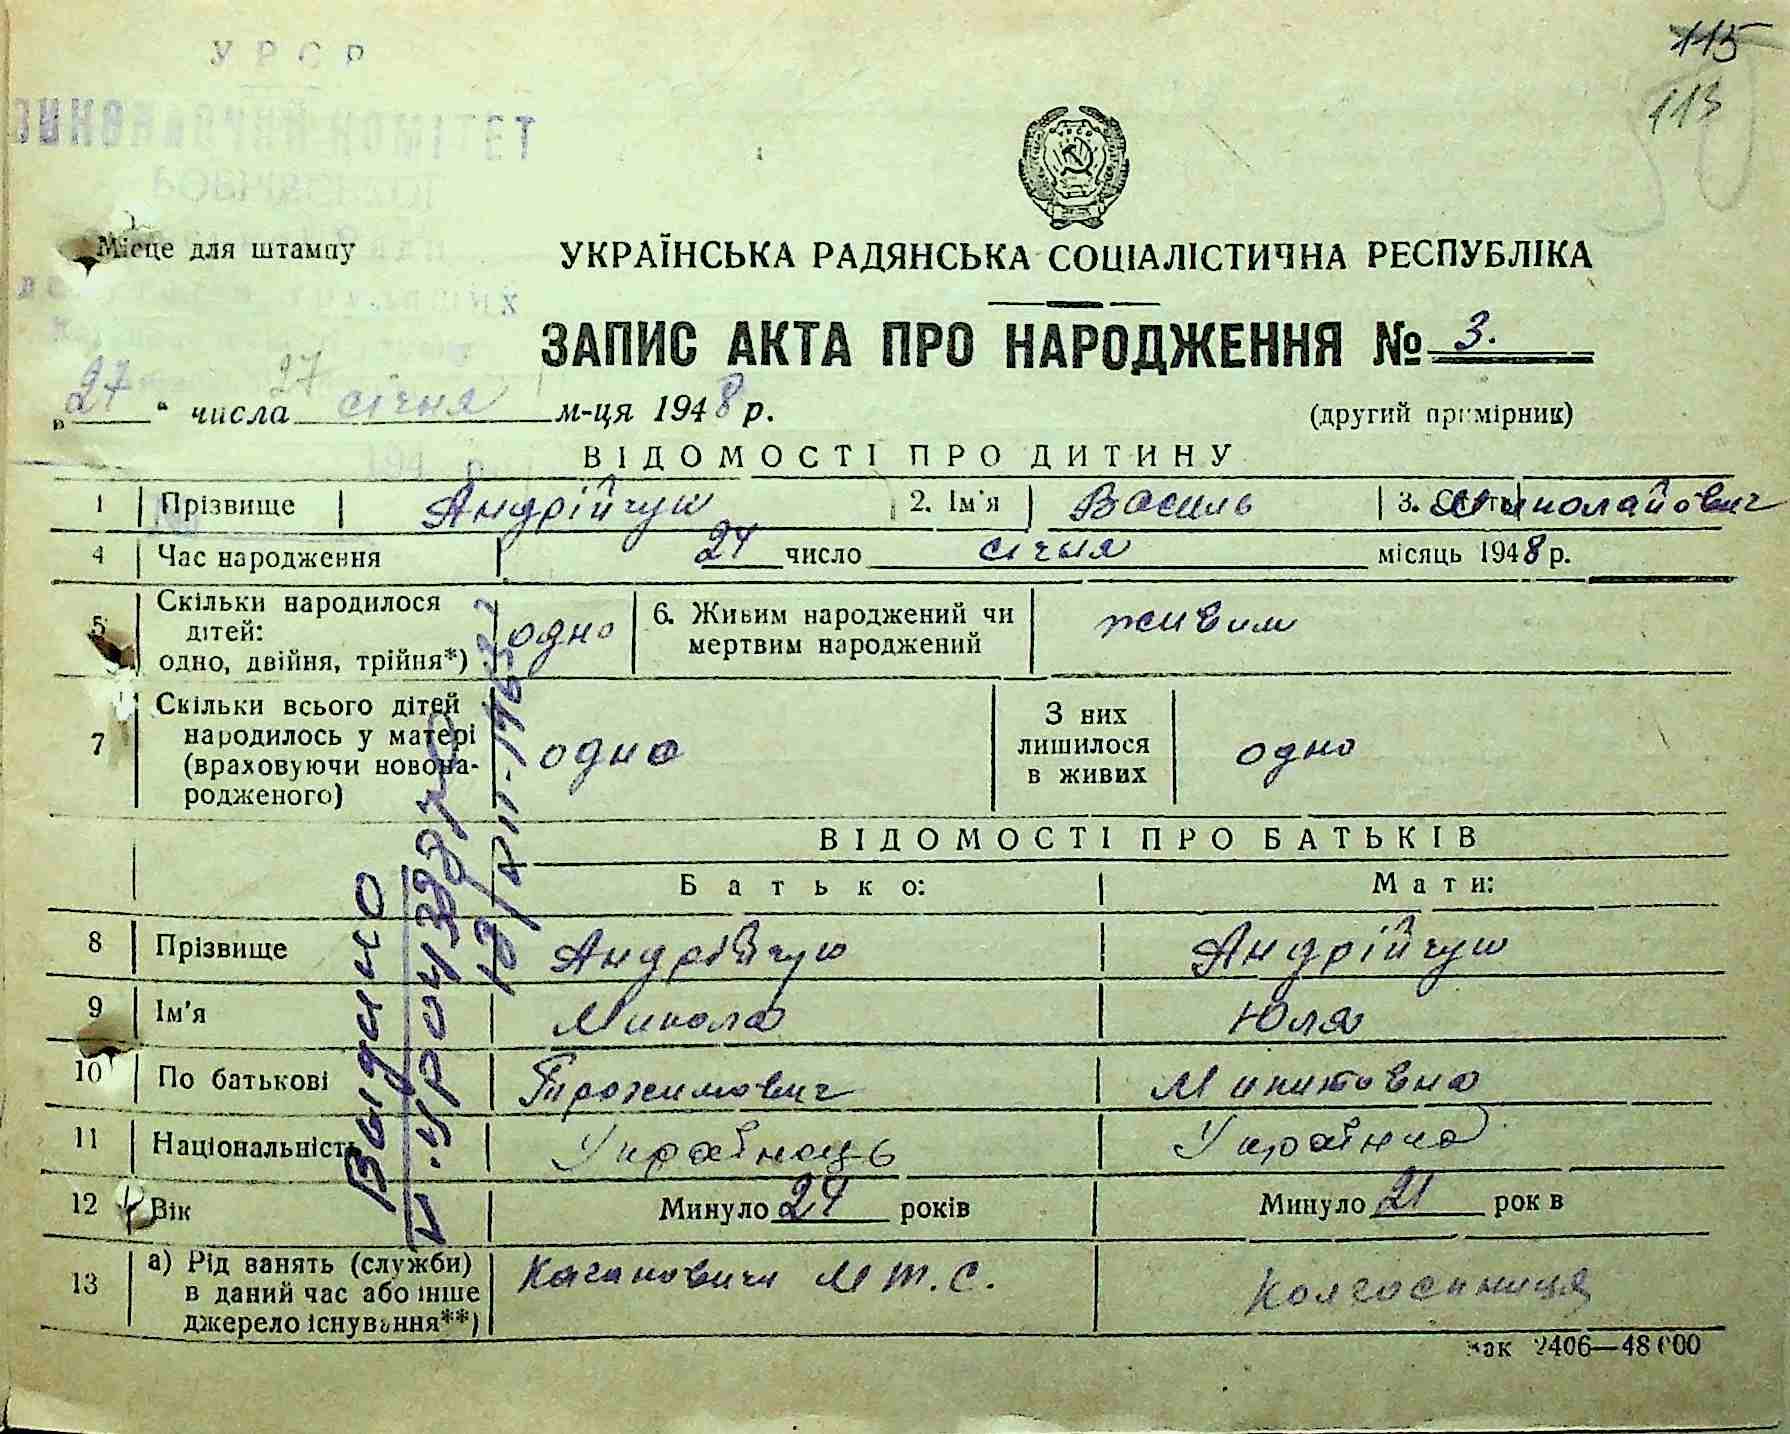 115
113
УРСР
Місце для штампу
УКРАЇНСЬКА РАДЯНСЬКА СОЦІАЛІСТИЧНА РЕСПУБЛІКА
ЗАПИС АКТА ПРО НАРОДЖЕННЯ № 3.
„27“ числа 27 січня м-ця 1948 р.
(другий примірник)
ВІДОМОСТІ ПРО ДИТИНУ
1 Прізвище Андрійчук 2. Ім'я Василь 3. Миколайович
4 Час народження 24 число січня місяць 1948 р.
5 Скільки народилося дітей: одно, двійня, трійня*) одно 6. Живим народжений чи мертвим народжений живим
7 Скільки всього дітей народилось у матері (враховуючи новонародженого) одно З них лишилося в живих одно
ВІДОМОСТІ ПРО БАТЬКІВ
Батько: Мати:
8 Прізвище Андрійчук Андрійчук
9 Ім'я Микола Юля
10 По батькові Трохимович Микитовна
11 Національність Українець Українка
12 Вік Минуло 24 років Минуло 21 років
13 а) Рід занять (служби) в даний час або інше джерело існування**) Кагановичи М.Т.С. Колгоспниця
Зак 2406—48000
Выдано